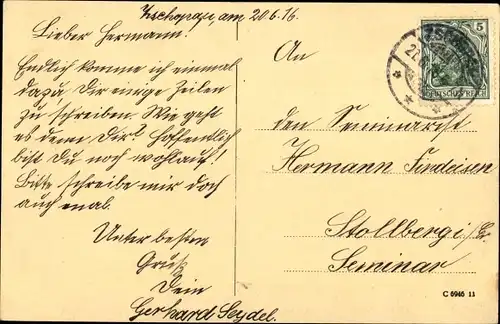 Zschopau am 20.6.16.
Lieber Hermann!
Endlich komme ich einmal
dazu Dir einige Zeilen
zu schreiben. Wie geht
es denn Dir? Hoffentlich
bist Du noch wohlauf!
Bitte schreibe mir doch
auch emal.
Unter besten
Gruß
Dein
Gerhard Seydel.
5
DEUTSCHES REICH
An
den Seminarist
Hermann Findeisen
Stollberg i/E.
Seminar
C 6946 11